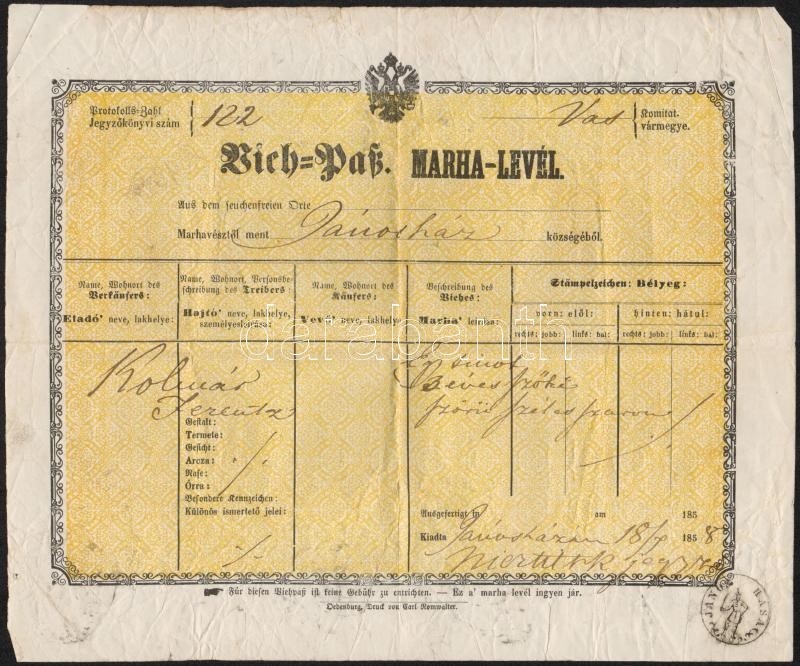 Protokolls-Zahl
Jegyzőkönyvi szám
122
Vas
Komitat.
vármegye.
Vieh=Paß. MARHA-LEVÉL.
Aus dem seuchenfreien Orte
Marhavésztől ment Jánosház községéből.
Name, Wohnort des
Verkäufers:
Eladó' neve, lakhelye:
Name, Wohnort, Personsbe-
schreibung des Treibers:
Hajtó' neve, lakhelye,
személyesleirása:
Name, Wohnort des
Käufers:
Vevő' neve, lakhelye:
Beschreibung des
Viehes:
Marha' leirása
Stämpelzeichen: Bélyeg:
vorn: elől:
hinten: hátul:
rechts: jobb:
links: bal:
rechts: jobb:
links: bal:
darabanth
Kolmár
Ferentz
eves szőke
szörü széles szarvu
Gestalt:
Termete:
Gesicht:
Arcza:
Nase:
Orra:
Besondere Kennzeichen:
Különös ismertető jelei:
Ausgefertigt in am 185
Kiadta Jánosházán 18/9 1858
jegyző
Für diesen Viehpaß ist keine Gebühr zu entrichten. — Ez a' marha levél ingyen jár.
Oedenburg, Druck von Carl Romwalter.
JANOS HASA